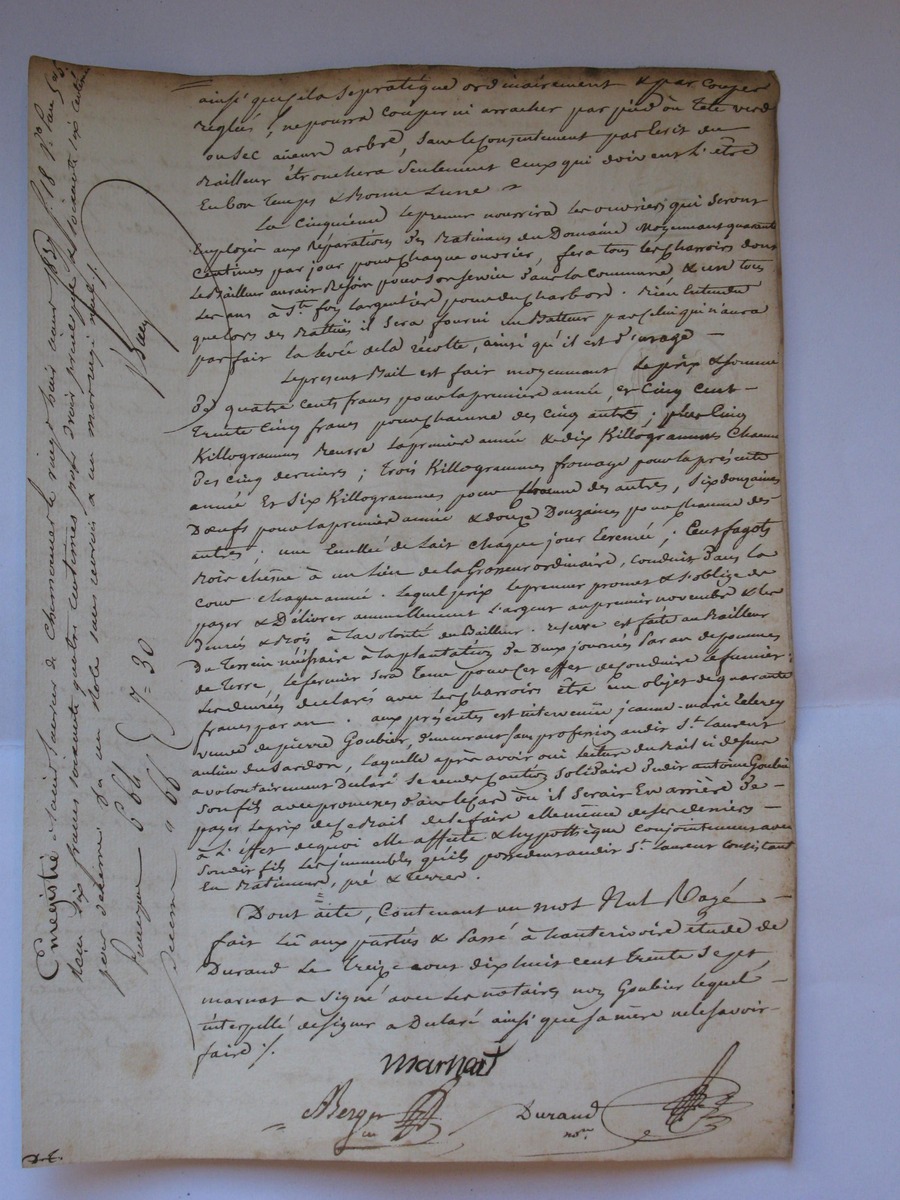 ainsi que cela se pratique ordinairement & par coupes
reglés ; ne pourra couper ni arracher par pied ou tete verd
ou sec aucun arbre, sans le consentement par Ecrit du
Bailleur étronchera Seulement Ceux qui doivent l'être
En bon temps & Bonne Lune
La Cinquieme Le preneur nourrira Les ouvriers qui Seront
Employés aux Réparations des Batimens du Domaine moyennant quarante
Centimes par jour pour chaque ouvrier, fera tous les charrois dont
Le Bailleur aurait Besoin pour Son Service dans la Commune & un tous
Les ans à Ste foy l'argentière pour du Charbon. Bien Entendu
que lors des Batties il Sera fourni un Batteur par Celui qui n'aura
pas fait la levée de la récolte, ainsi qu'il est d'usage
Le present Bail est fait moyennant Le prix & Somme
De quatre Cents francs pour la premiere année, et Cinq Cent
trente Cinq francs pour chacune des Cinq autres ; plus Cinq
Killogrammes Beurre La premiere année & dix Killogrammes Chacune
des Cinq dernieres ; trois Killogrammes fromage pour la présente
année Et Six Killogrammes pour chacune des autres, Six douzaines
Dœufs pour la premiere année & douze Douzaines pour chacune des
autres ; une de Lait chaque jour ; Cent fagots
Bois chêne à un Lien de la Grosseur ordinaire, conduits dans la
cour chaque année. Lequel prix Le preneur promet & s'oblige de
payer & Délivrer annuellement L'argent au premier novembre & les
Denrés & Bois à la volonté du Bailleur. réserve est faite au Bailleur
Du terrein nécéssaire à la plantation De Deux journés Par an de pommes
de terre, Le fermier Sera Tenu pour cet effet de Conduire Le fumier ;
Les denrées declarés avec Les Charrois être un objet de quarante
francs par an. aux présentes est intervenüe jeanne-marie
veuve de pierre Goubier, demeurant Sans profession audit St Laurent
au lieu du Sardon, Laquelle après avoir oui lecture du Bail ci dessus
a volontairement Declaré Se rendre Caution Solidaire Dudit antoine Goubier
Son fils avec promesses Dans le Cas où il Serait En arrière De
payer Le prix de Ce Bail de le faire elle même de Ses deniers
à L'effet de quoi elle affecte & hypothèque Conjointement avec
Sondit fils Les immeubles qu'ils possedent audit St Laurent Consistant
En Batimens, pré & terres.
Dont acte, Contenant un mot Nul Rayé
fait Lû aux partiës & Passé à hauterivoire étude de
Durand Le treize aout dix huit cent trente Sept
marnat a Signé avec Les notaires non Goubier Lequel
interpellé de signer a Declaré ainsi que Sa mère ne le Savoir
faire ./.
marnat
Berger
Durand
nore
Enregistré à Saint Laurent de Chamousset le vingt trois aout 1837
francs soixante quatre centimes
pour decharge
664
66
7= 30